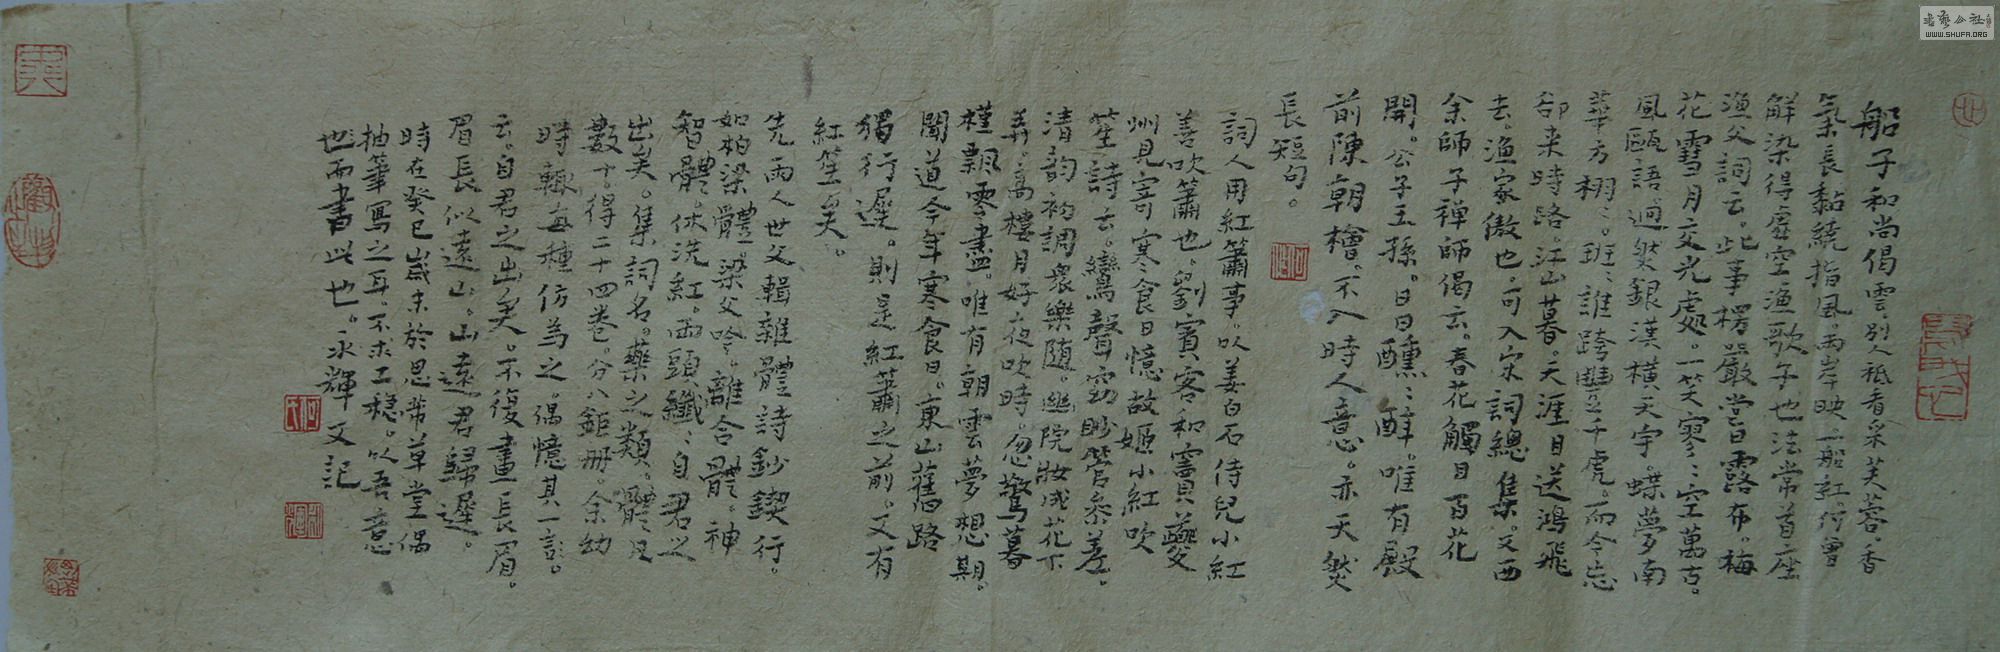 船子和尚偈雲別人秪看采芙蓉。香
氣長黏繞指風。兩岸映。一船紅。何曾
解染得虛空。漁歌子也。法常首座
漁父詞云。此事楞嚴嘗曰露布。梅
花雪月交光處。一笑寥〻空萬古。
風甌語。迥然銀漢橫天宇。蝶夢南
華方栩〻。班〻誰跨豐干虎。而今忘
卻来時路。江山暮。天涯目送鴻飛
去。漁家傲也。可入宋詞總集。又西
余師子禅師偈云。春花觸目百花
開。公子王孫。日日醺〻醉。唯有殿
前陳朝檜。不入時人意。亦天然
長短句。
詞人用紅簫事。以姜白石侍兒小紅
善吹簫也。劉賓客和竇員外夔
州見寄寒食日憶故姬小紅吹
笙詩云。鸞聲窈眇管參差。
清韵初調眾樂随。幽院妝成花下
弄。高樓月好夜吹時。忽驚暮
槿飄零盡。唯有朝雲夢想期。
聞道今年寒食日。東山舊路
獨行遲。則是紅簫之前。又有
紅笙矣。
先兩人世父輯雜體詩鈔鍥行。
如柏梁體。梁父吟。離合體。神
智體。休洗紅。兩頭纖〻。自君之
出矣。集詞名。藥之類。體凡
數十。得二十四卷。分八鉅册。余幼
時輒每種仿為之。偶憶其一
云。自君之出矣。不復畫長眉。
眉長似遠山。山遠君歸遲。
時在癸巳歲末於思蒂草堂偶
抽筆寫之耳。不求工穩。以吾意
也而書此也。永輝又記
書藝公社
WWW.SHUFA.ORG